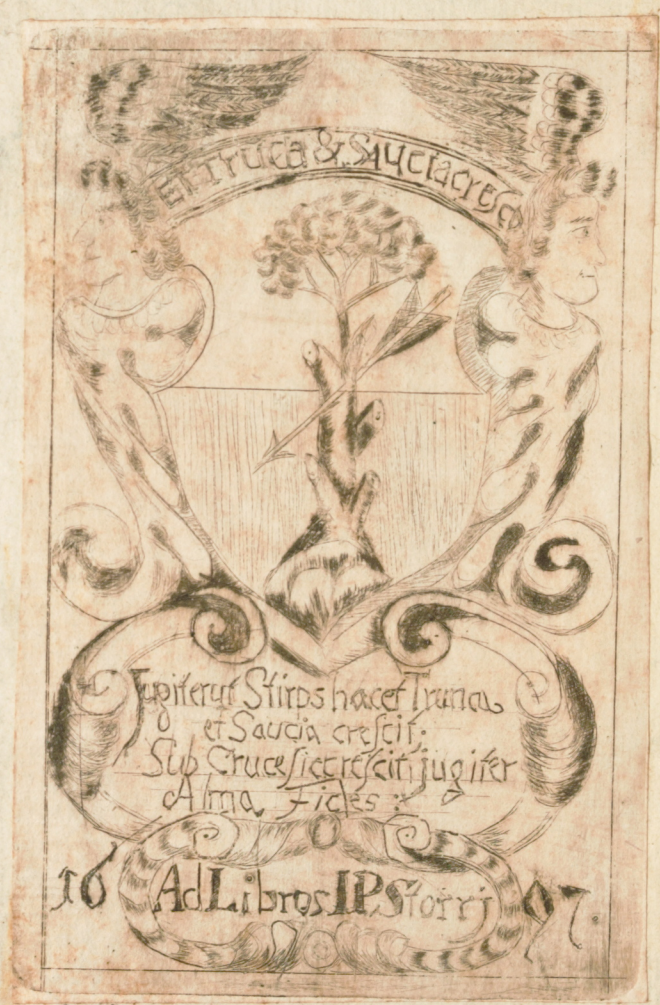 Et Truca & Sauciacresco
Jugiterut Stirps hacet Trunca
et Saucia crescit:
Sub Cruce sic crescit, jugiter
Alma Fides:
1697.
Ad Libros I P. Storri